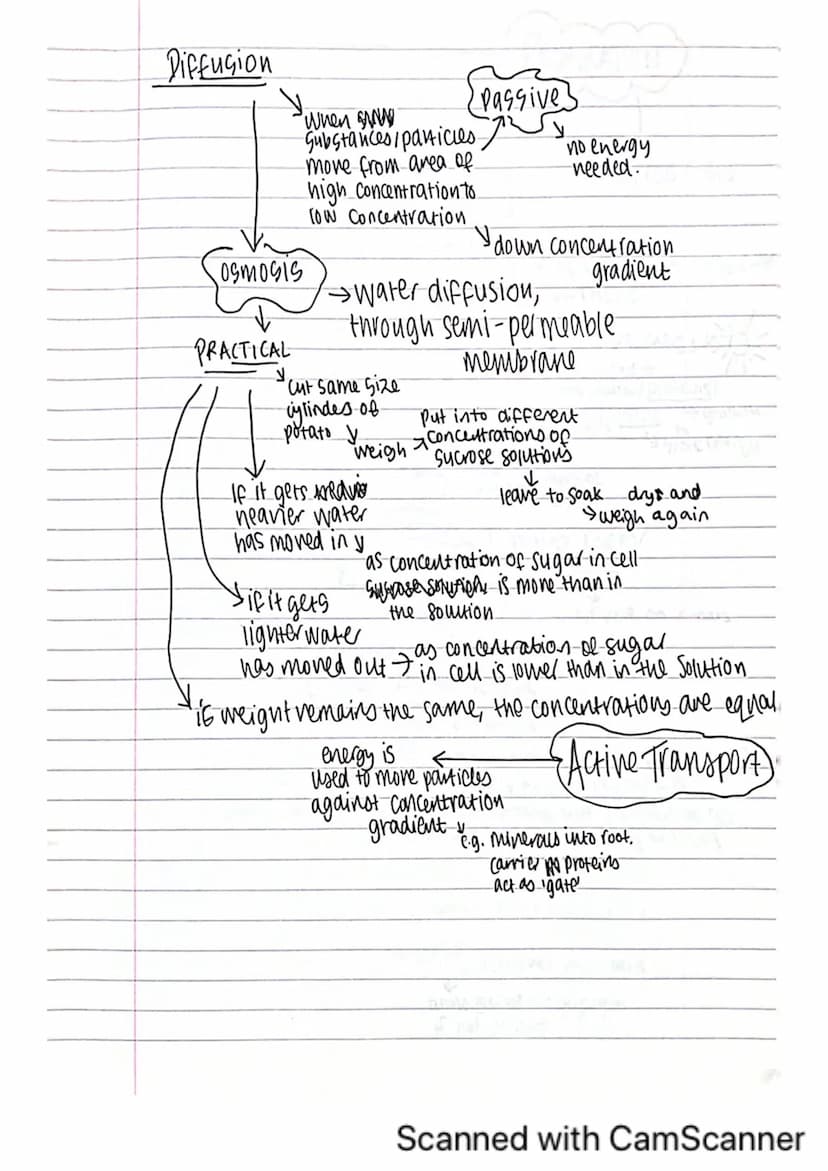 Diffusion
When
substances/particles
move from area of
high concentration to
low concentration
passive
no energy
needed.
down concentration
gradient
OSMOSIS
→ water diffusion,
through semi-permeable
membrane
PRACTICAL
cut same size
cylindes of
potato
weigh
Put into different
concentrations of
sucrose solutions
leave to soak
drys and
weigh again
If it gets
heavier water
has moved in
as concentration of sugar in cell
is more than in
the solution
if it gets
lighter water
has moved out →
as concentration of sugar
in cell is lower than in the solution
if weight remains the same, the concentrations are equal
Active Transport
energy is
used to move particles
against concentration
gradient
e.g. minerals into root.
carrier proteins
act as 'gate'
Scanned with CamScanner